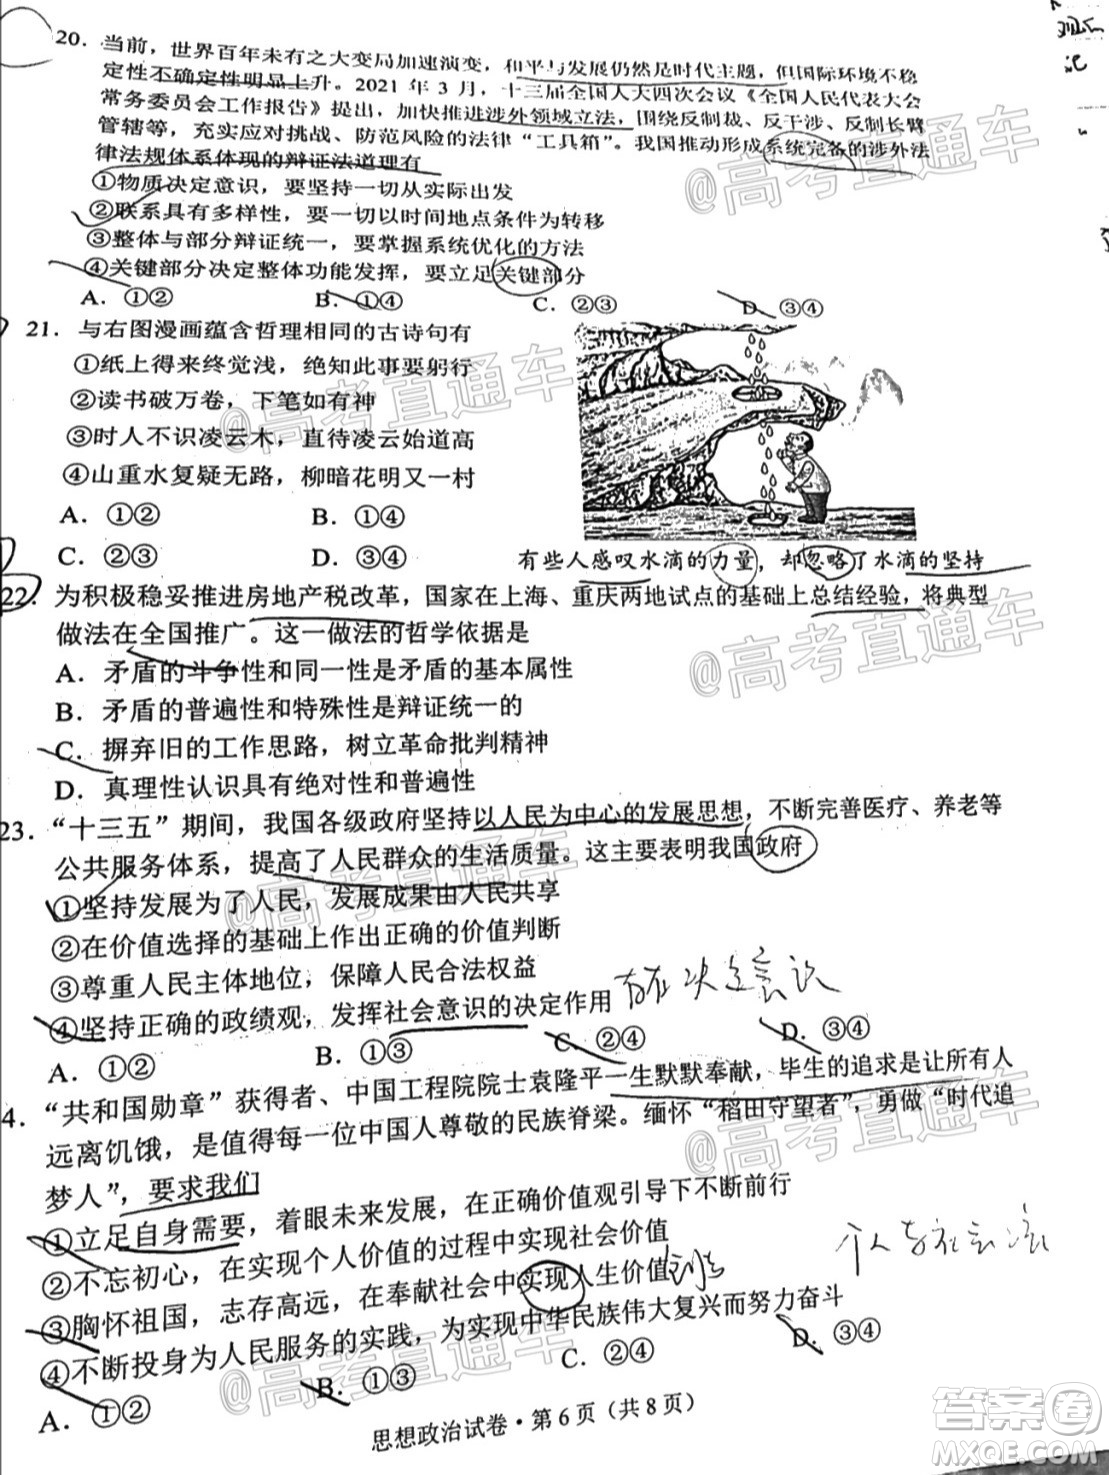 20．当前，世界百年未有之大变局加速演变，和平与发展仍然是时代主题，但国际环境不稳
定性不确定性明显上升。2021 年 3 月，十三届全国人大四次会议《全国人民代表大会
常务委员会工作报告》提出，加快推进涉外领域立法，围绕反制裁、反干涉、反制长臂
管辖等，充实应对挑战、防范风险的法律“工具箱”。我国推动形成系统完备的涉外法
律法规体系体现的辩证法道理有
①物质决定意识，要坚持一切从实际出发
②联系具有多样性，要一切以时间地点条件为转移
③整体与部分辩证统一，要掌握系统优化的方法
④关键部分决定整体功能发挥，要立足关键部分
A．①② B．①④ C．②③ D．③④
21．与右图漫画蕴含哲理相同的古诗句有
①纸上得来终觉浅，绝知此事要躬行
②读书破万卷，下笔如有神
③时人不识凌云木，直待凌云始道高
④山重水复疑无路，柳暗花明又一村
A．①② B．①④
C．②③ D．③④
有些人感叹水滴的力量，却忽略了水滴的坚持
22．为积极稳妥推进房地产税改革，国家在上海、重庆两地试点的基础上总结经验，将典型
做法在全国推广。这一做法的哲学依据是
A．矛盾的斗争性和同一性是矛盾的基本属性
B．矛盾的普遍性和特殊性是辩证统一的
C．摒弃旧的工作思路，树立革命批判精神
D．真理性认识具有绝对性和普遍性
23．“十三五”期间，我国各级政府坚持以人民为中心的发展思想，不断完善医疗、养老等
公共服务体系，提高了人民群众的生活质量。这主要表明我国政府
①坚持发展为了人民，发展成果由人民共享
②在价值选择的基础上作出正确的价值判断
③尊重人民主体地位，保障人民合法权益
④坚持正确的政绩观，发挥社会意识的决定作用 存在决定意识
A．①② B．①③ C．②④ D．③④
4．“共和国勋章”获得者、中国工程院院士袁隆平一生默默奉献，毕生的追求是让所有人
远离饥饿，是值得每一位中国人尊敬的民族脊梁。缅怀“稻田守望者”，勇做“时代追
梦人”，要求我们
①立足自身需要，着眼未来发展，在正确价值观引导下不断前行
②不忘初心，在实现个人价值的过程中实现社会价值
③胸怀祖国，志存高远，在奉献社会中实现人生价值
④不断投身为人民服务的实践，为实现中华民族伟大复兴而努力奋斗
A．①② B．①③ C．②④ D．③④
思想政治试卷·第 6 页（共 8 页）
@高考直通车
@高考直通车
@高考直通车
@高考直通车
@高考直通车
@高考直通车
答案圈
MXQE.COM